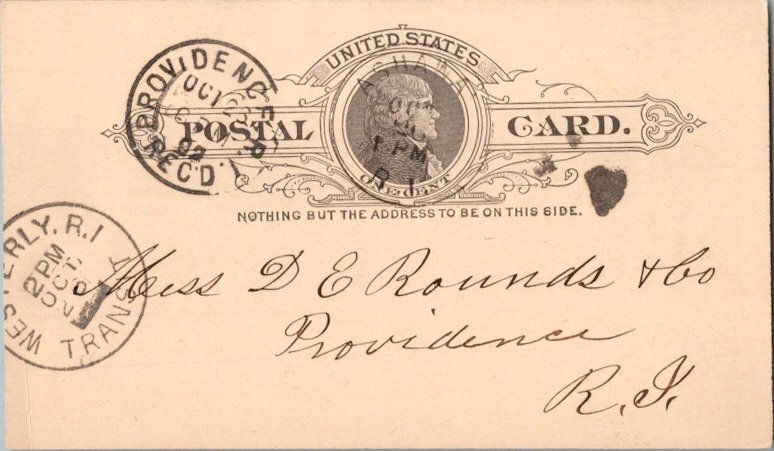 UNITED STATES
POSTAL CARD.
ONE CENT
NOTHING BUT THE ADDRESS TO BE ON THIS SIDE.
PROVIDENCE, R.I.
OCT
REC'D.
ASHAWAY
OCT
1 PM
R.I.
WESTERLY, R.I.
2 PM
OCT
TRANSIT
Mess D E Rounds & Co
Providence
R.I.